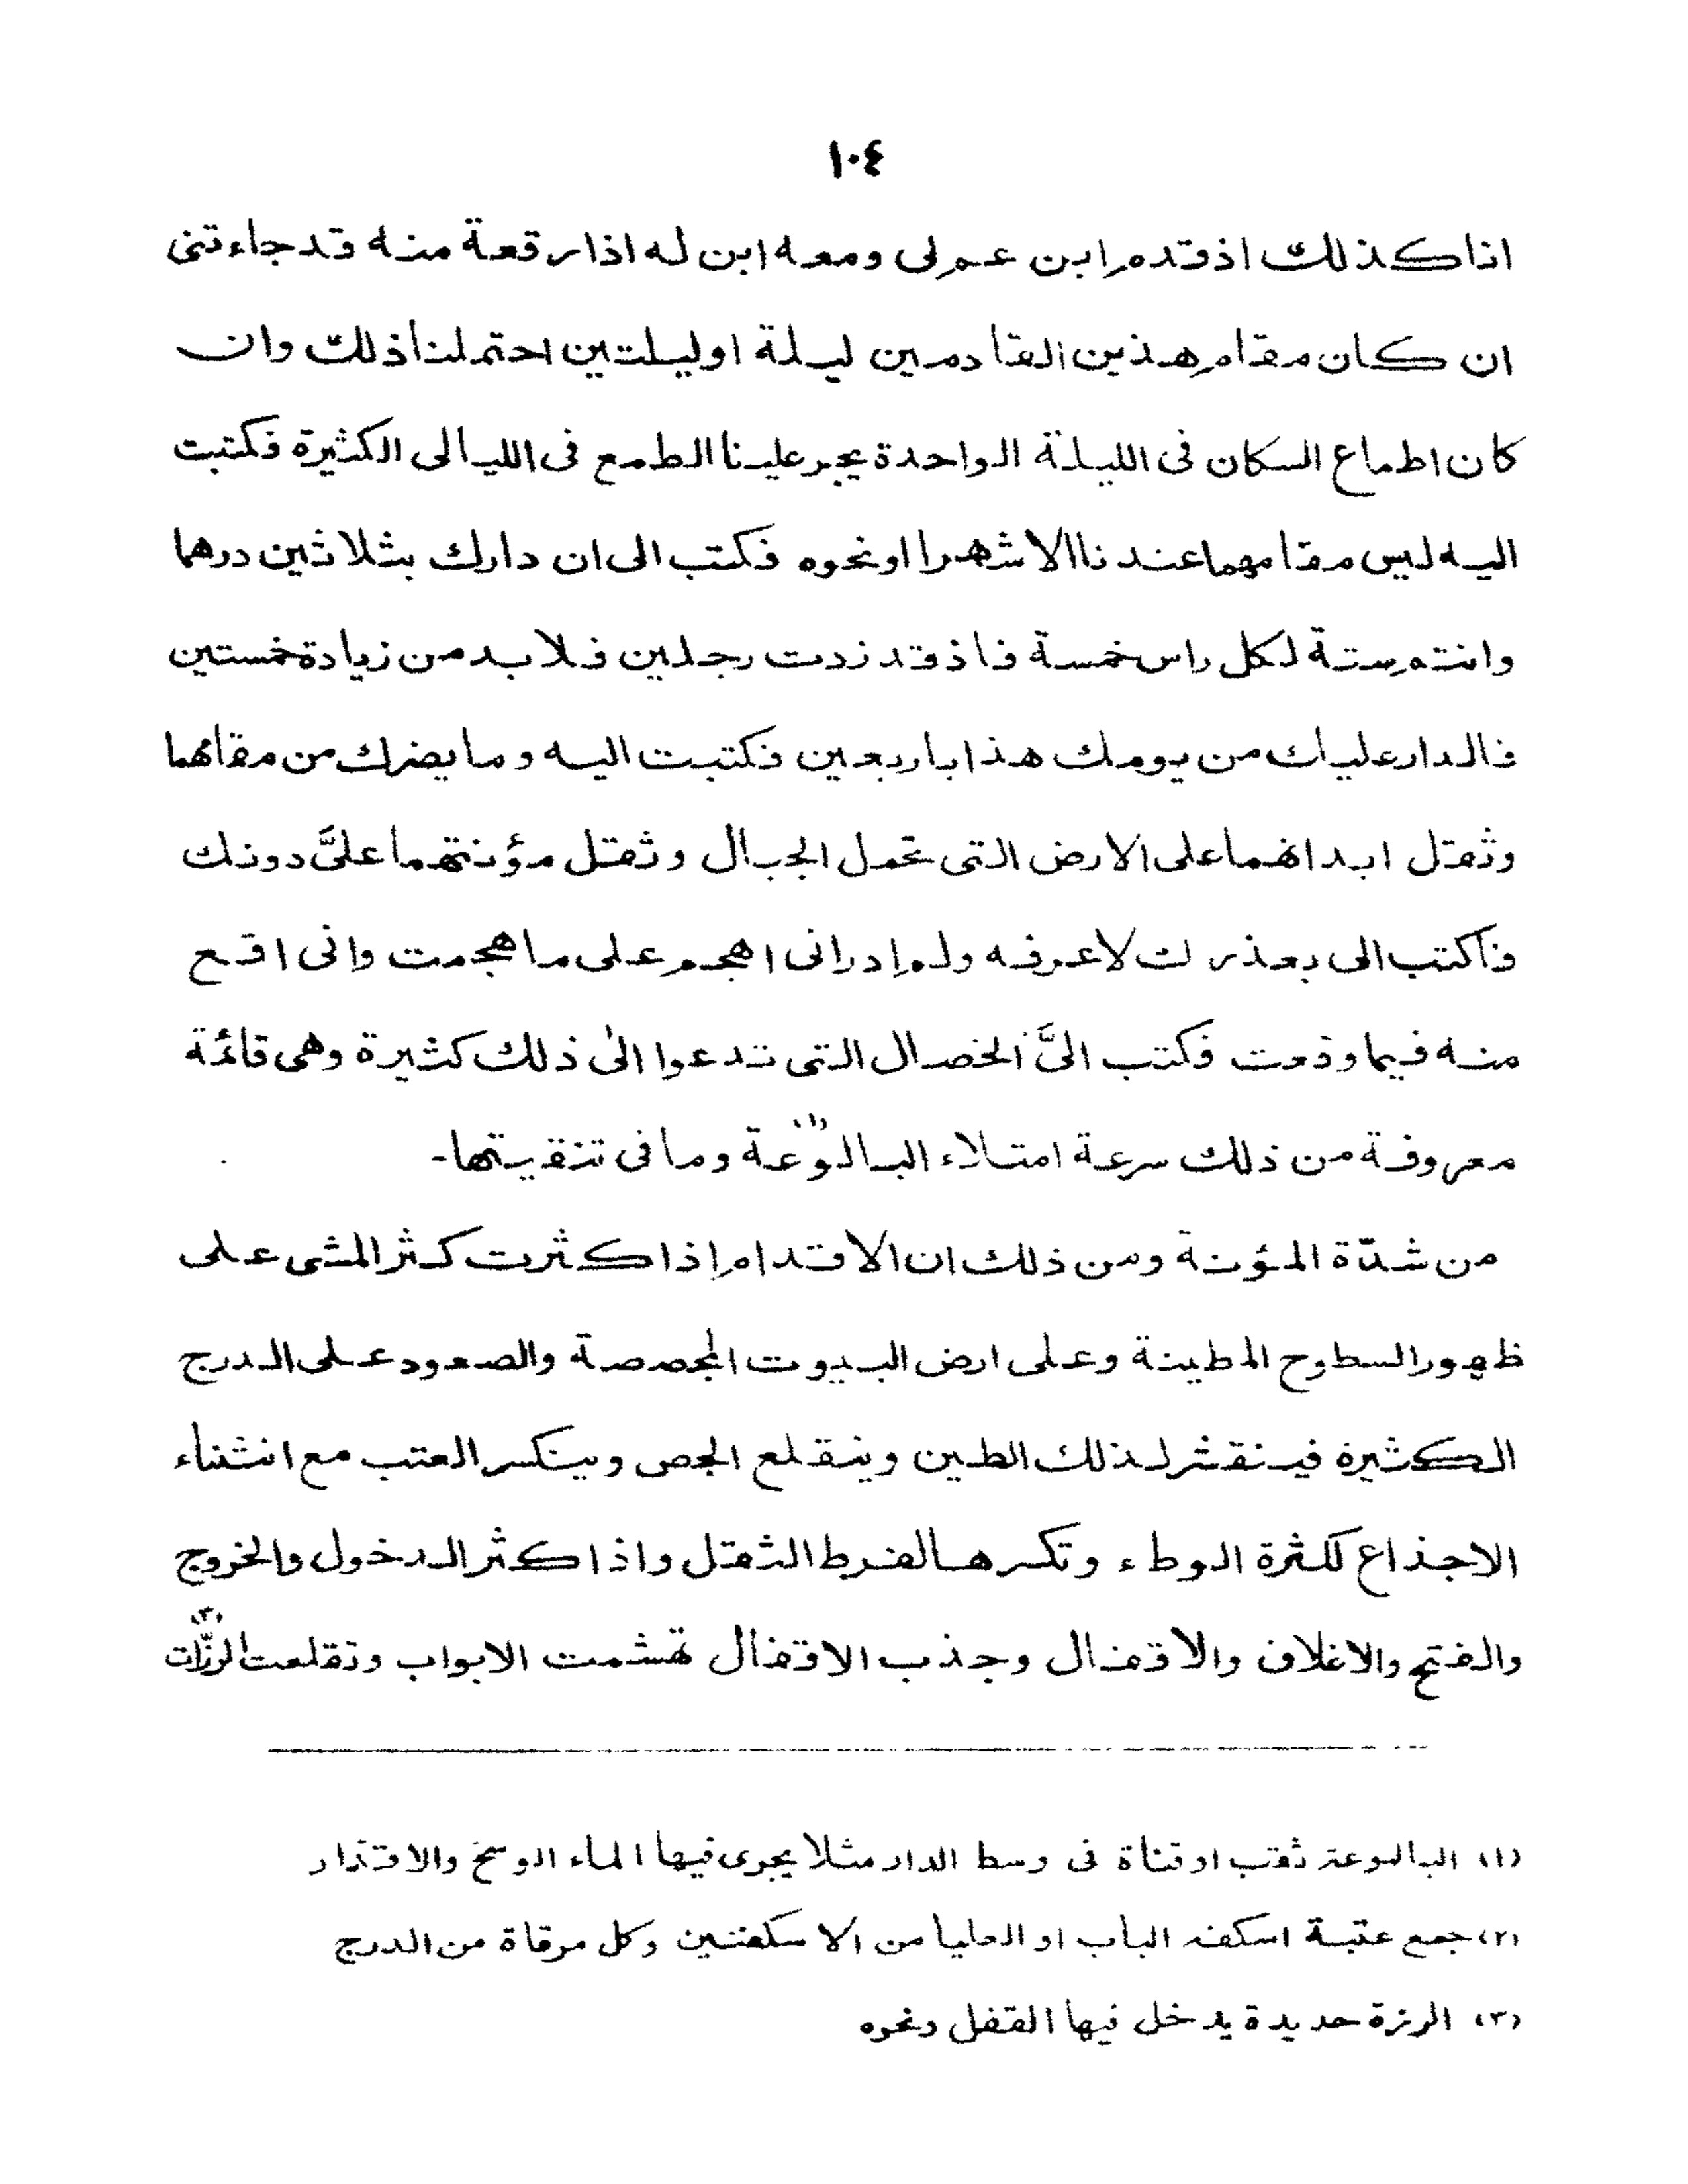 ١٠٤
انا كذلك اذ قدم ابن عم لى ومعه ابن له اذا رقعة منه قد جاءتنى
ان كان مقام هذين القادمين ليلة او ليلتين احتملنا ذلك وان
كان اطماع السكان فى الليلة الواحدة يجر علينا الطمع فى الليالى الكثيرة فكتبت
اليه ليس مقامهما عندنا الا شهرا او نحوه فكتب الى ان دارك بثلاثين درهما
وانتم ستة لكل راس خمسة فاذ قد زدت رجلين فلا بد من زيادة خمستين
فالدار عليك من يومك هذا باربعين فكتبت اليه وما يضرك من مقامهما
وثقل ابدانهما على الارض التى تحمل الجبال وثقل مؤنتهما علىَّ دونك
فاكتب الى بعذرك لاعرفه ولم ادر انى اهجم على ما هجمت وانى اقع
منه فيما وقعت فكتب الىَّ الخصال التى تدعوا الى ذلك كثيرة وهى قائمة
معروفة من ذلك سرعة امتلاء البالوعة (١) وما فى تنقيتها-
من شدّة المؤنة ومن ذلك ان الاقدام اذا كثرت كثر المشى على
ظهور السطوح المطينة وعلى ارض البيوت المجصصة والصعود على الدرج
الكثيرة فينقشر لذلك الطين وينقلع الجص وينكسر العتب مع انثناء
الاجذاع لكثرة الوطء وتكسرها لفرط الثقل واذا كثر الدخول والخروج
والفتح والاغلاق والاقفال وجذب الاقفال تهشمت الابواب وتقلعت الرزّات (٣)
(١) البالوعة ثقب او قناة فى وسط الدار مثلا يجرى فيها الماء الوسخ والاقذار
(٢) جمع عتبة اسكفه الباب او العليا من الاسكفتين وكل مرقاة من الدرج
(٣) الرزة حديدة يدخل فيها القفل ونحوه